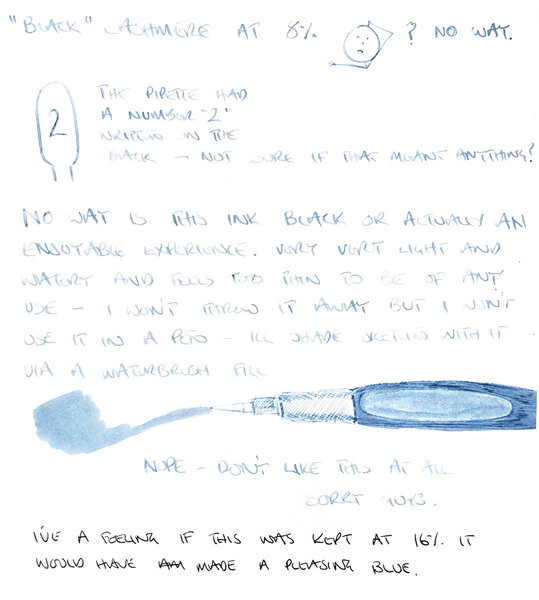 "BLACK" CASHMERE AT 8% ? NO WAY.
THE PIPETTE HAD
2
A NUMBER "2"
WRITTEN IN THE
BLACK – NOT SURE IF THAT MEANT ANYTHING?
NO WAY IS THIS INK BLACK OR ACTUALLY AN
ENJOYABLE EXPERIENCE. VERY VERY LIGHT AND
WATERY AND FEELS TOO THIN TO BE OF ANY
USE – I WON'T THROW IT AWAY BUT I WON'T
USE IT IN A PEN – ILL SHADE SKETCHES WITH IT
VIA A WATERBRUSH FILL
NOPE – DON'T LIKE THIS AT ALL
SORRY GUYS.
I'VE A FEELING IF THIS WAS KEPT AT 16% IT
WOULD HAVE MADE A PLEASING BLUE.